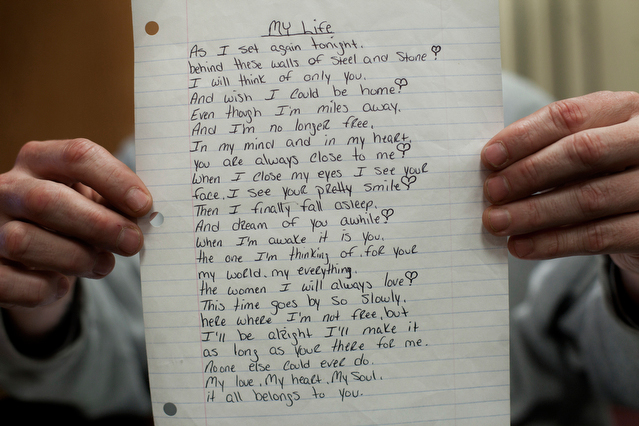 My Life
As I set again tonight.
behind these walls of Steel and Stone?
I will think of only you.
And wish I could be home?
Even though I'm miles away.
And I'm no longer free.
In my mind and in my heart.
you are always close to me?
When I close my eyes I see your
face. I see your pretty smile?
Then I finally fall asleep.
And dream of you awhile?
When I'm awake it is you.
the one I'm thinking of. for your
my world. my everything.
the women I will always love?
This time goes by so slowly.
here where I'm not free. but
I'll be alright I'll make it
as long as your there for me.
No one else could ever do.
My love. My heart. My Soul.
it all belongs to you.